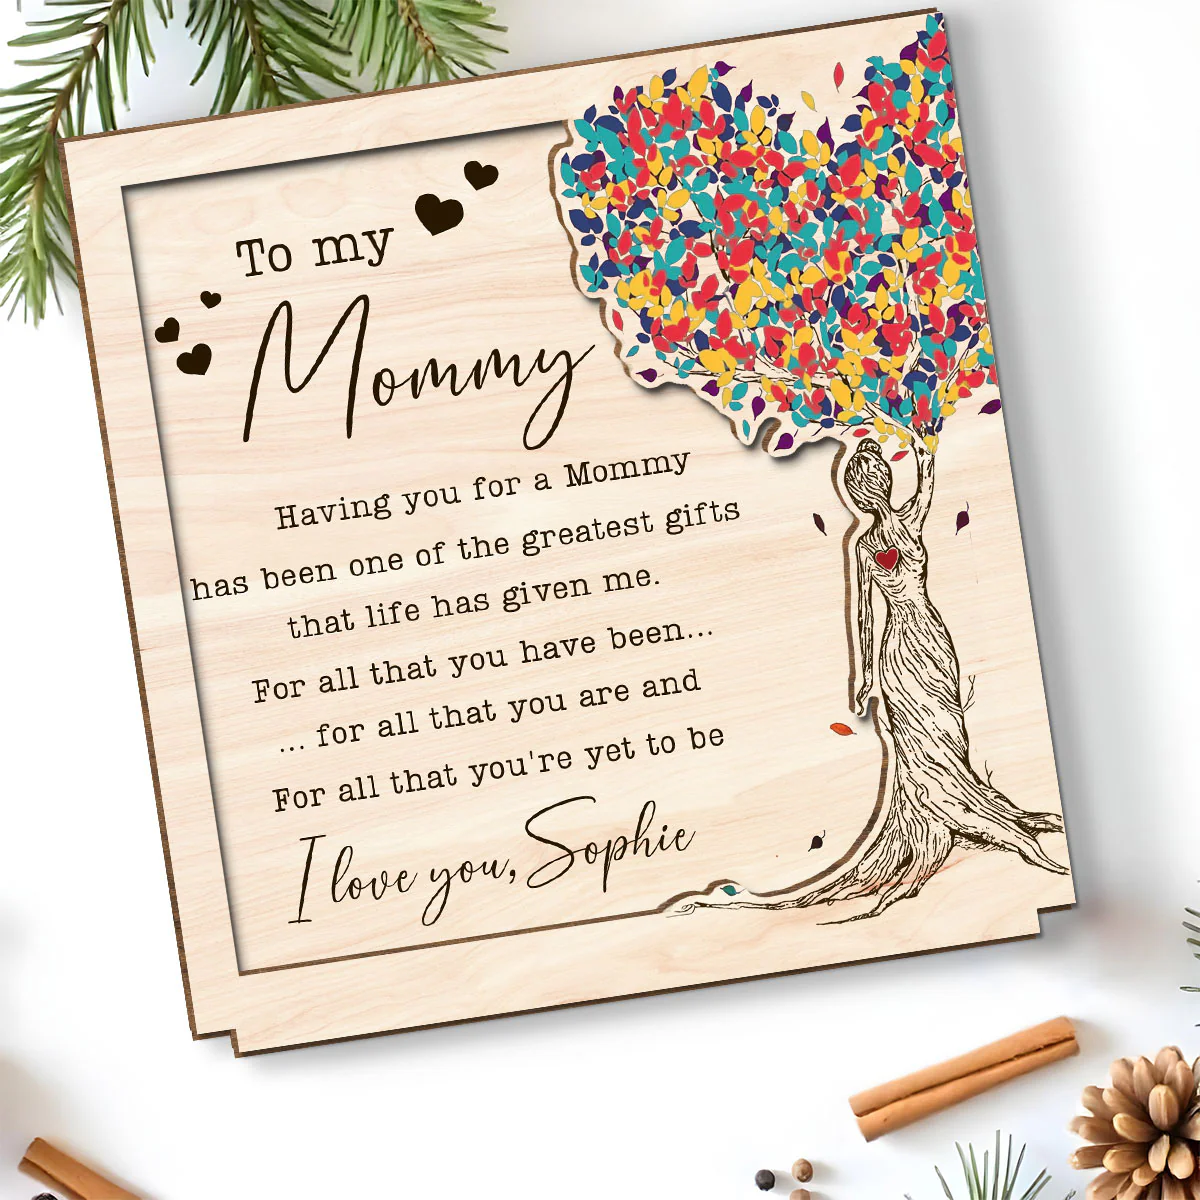 To my
Mommy
Having you for a Mommy
has been one of the greatest gifts
that life has given me.
For all that you have been...
... for all that you are and
For all that you're yet to be
I love you, Sophie